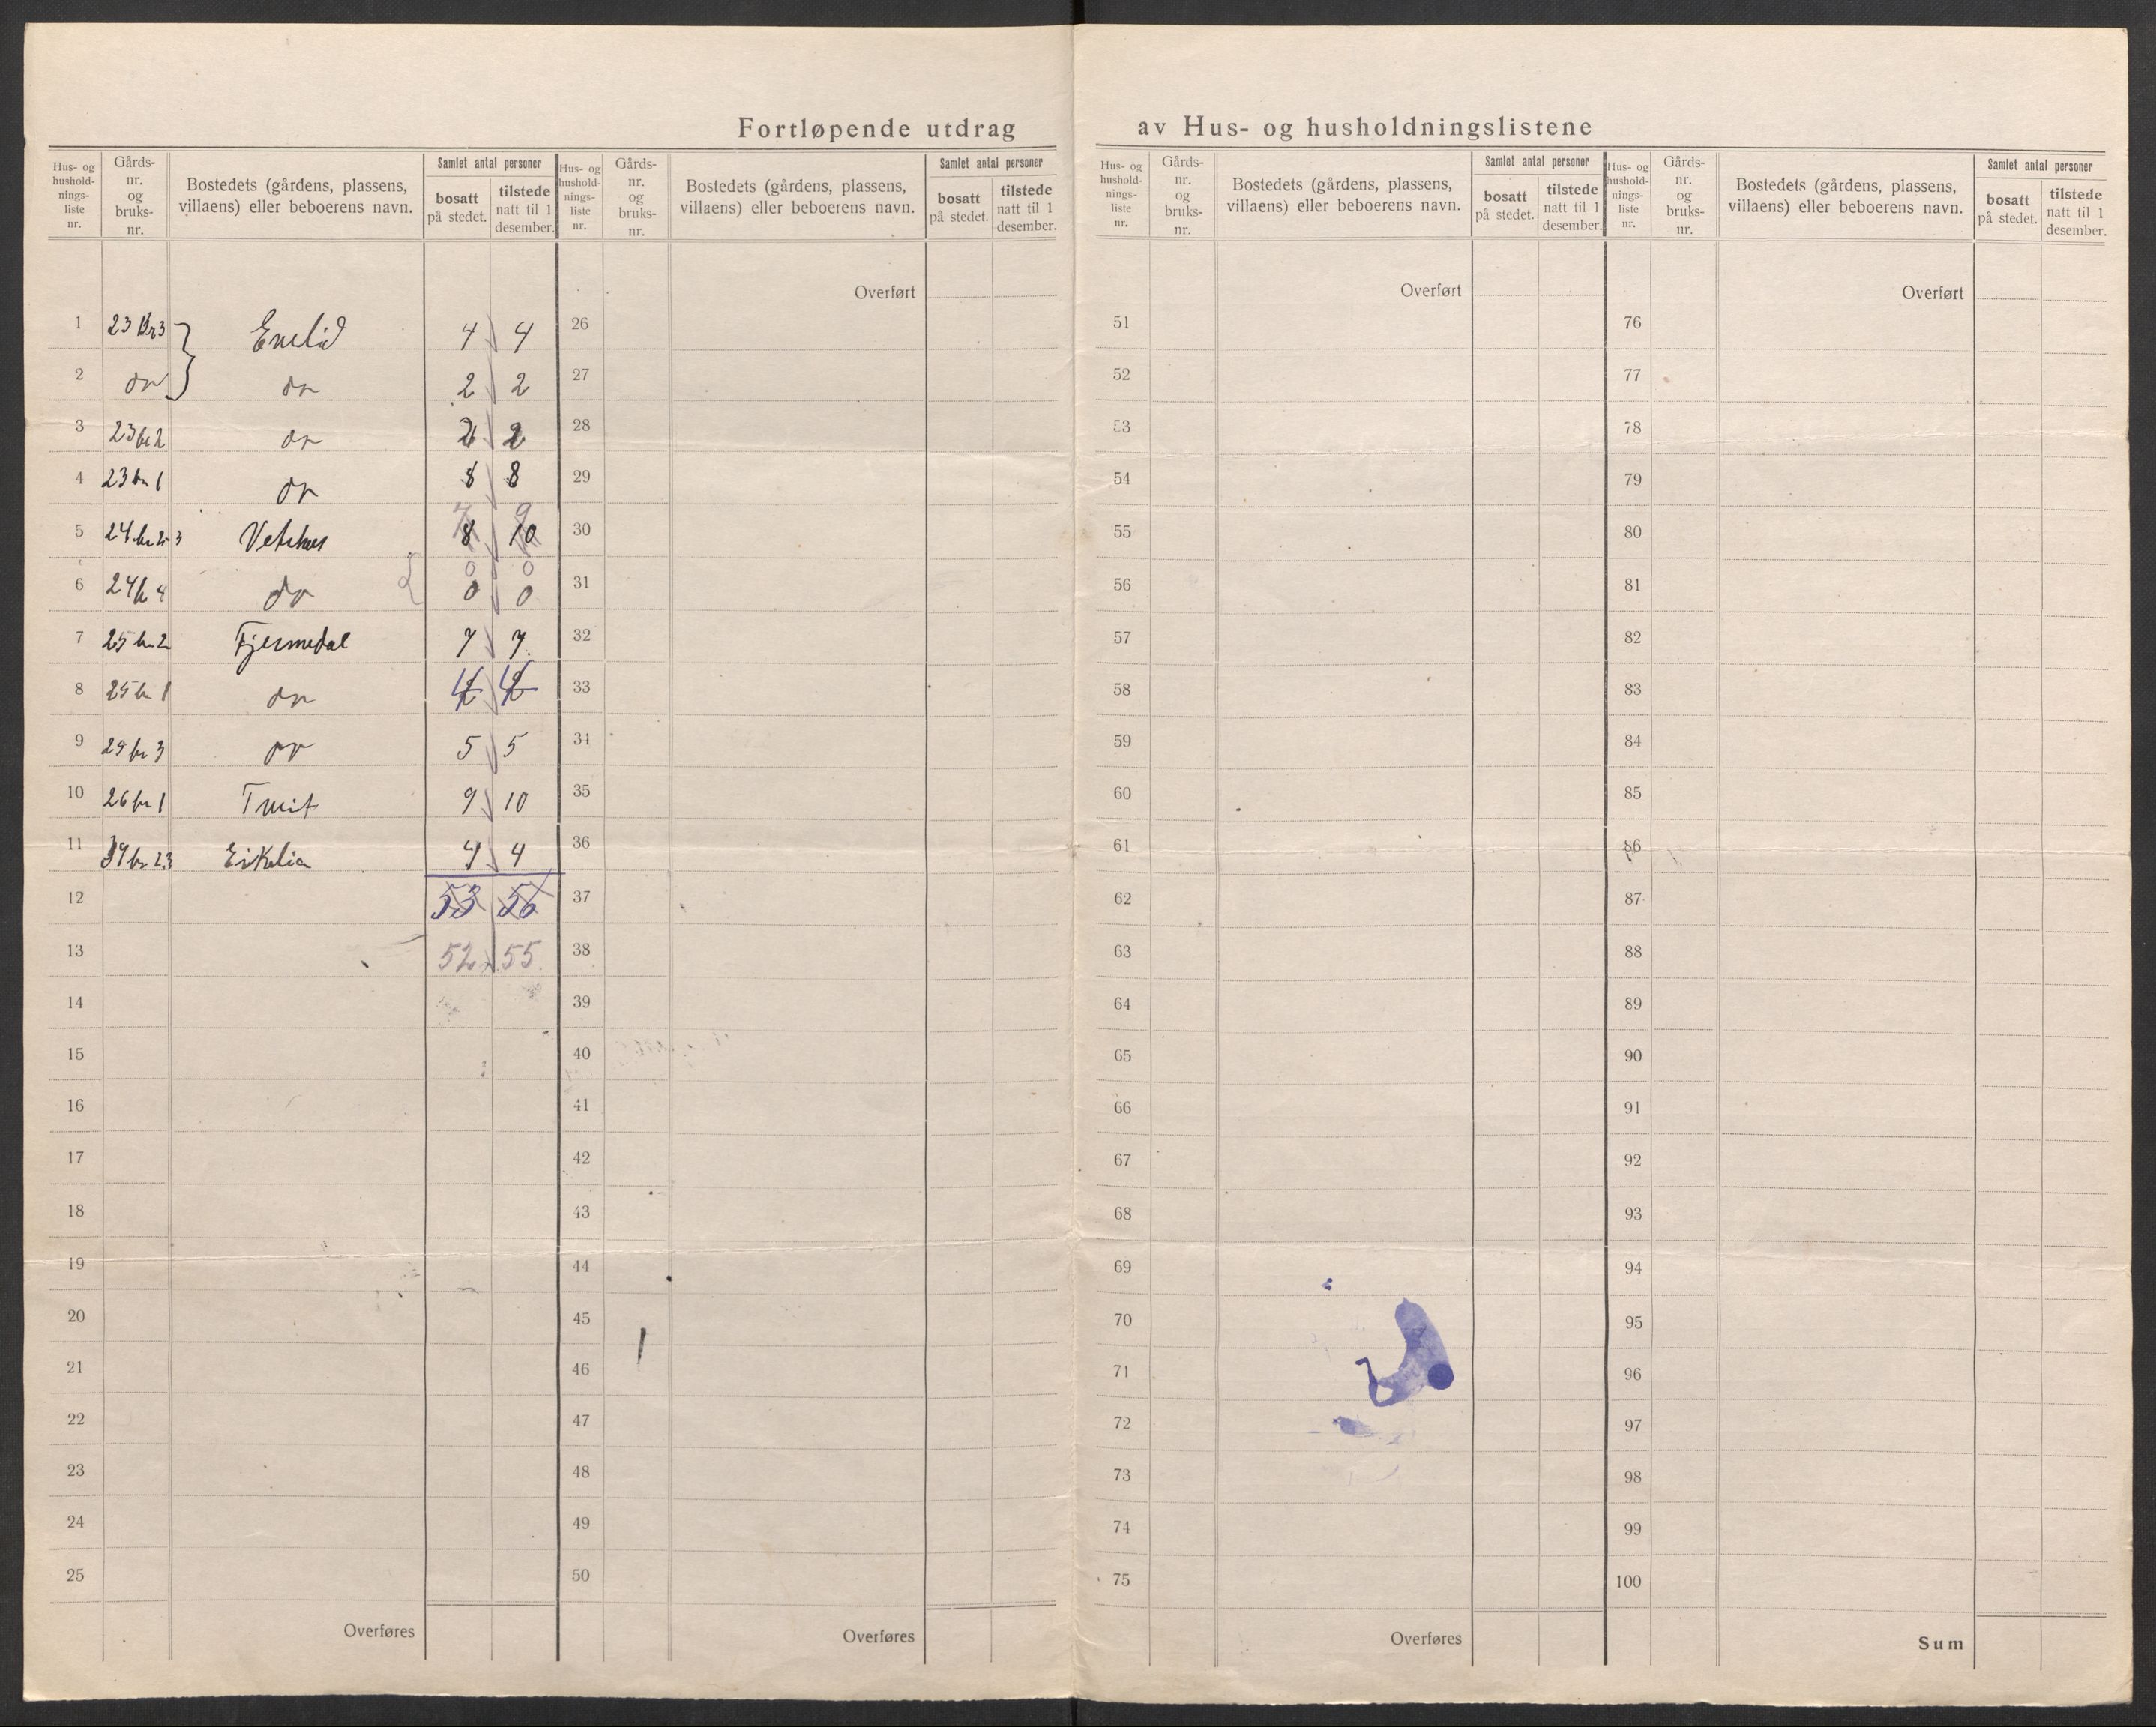 Fortløpende utdrag av Hus- og husholdningslistene
Hus- og hushold- nings- liste nr.
Gårds- nr. og bruks- nr.
Bostedets (gårdens, plassens, villaens) eller beboerens navn.
Samlet antal personer
bosatt på stedet.
tilstede natt til 1 desember.
Hus- og hushold- nings- liste nr.
Gårds- nr. og bruks- nr.
Bostedets (gårdens, plassens, villaens) eller beboerens navn.
Samlet antal personer
bosatt på stedet.
tilstede natt til 1 desember.
Hus- og hushold- nings- liste nr.
Gårds- nr. og bruks- nr.
Bostedets (gårdens, plassens, villaens) eller beboerens navn.
Samlet antal personer
bosatt på stedet.
tilstede natt til 1 desember.
Hus- og hushold- nings- liste nr.
Gårds- nr. og bruks- nr.
Bostedets (gårdens, plassens, villaens) eller beboerens navn.
Samlet antal personer
bosatt på stedet.
tilstede natt til 1 desember.
Overført
Overført
Overført
1 23 Br 3 4 4
2 do do 2 2
3 23 br 2 do 2 2
4 23 br 1 do 8 8
7 9
5 24 br 2-3 8 10
0 0
6 24 br 4 do 0 0
7 25 br 2 Fjermedal 7 7
8 25 br 1 do
9 25 br 3 do 5 5
10 26 br 1 Tveit 9 10
11 br 23 Eikelia 4 4
12 53 56
13 52 55
14
15
16
17
18
19
20
21
22
23
24
25
Overføres
26
27
28
29
30
31
32
33
34
35
36
37
38
39
40
41
42
43
44
45
46
47
48
49
50
Overføres
51
52
53
54
55
56
57
58
59
60
61
62
63
64
65
66
67
68
69
70
71
72
73
74
75
Overføres
76
77
78
79
80
81
82
83
84
85
86
87
88
89
90
91
92
93
94
95
96
97
98
99
100
Sum